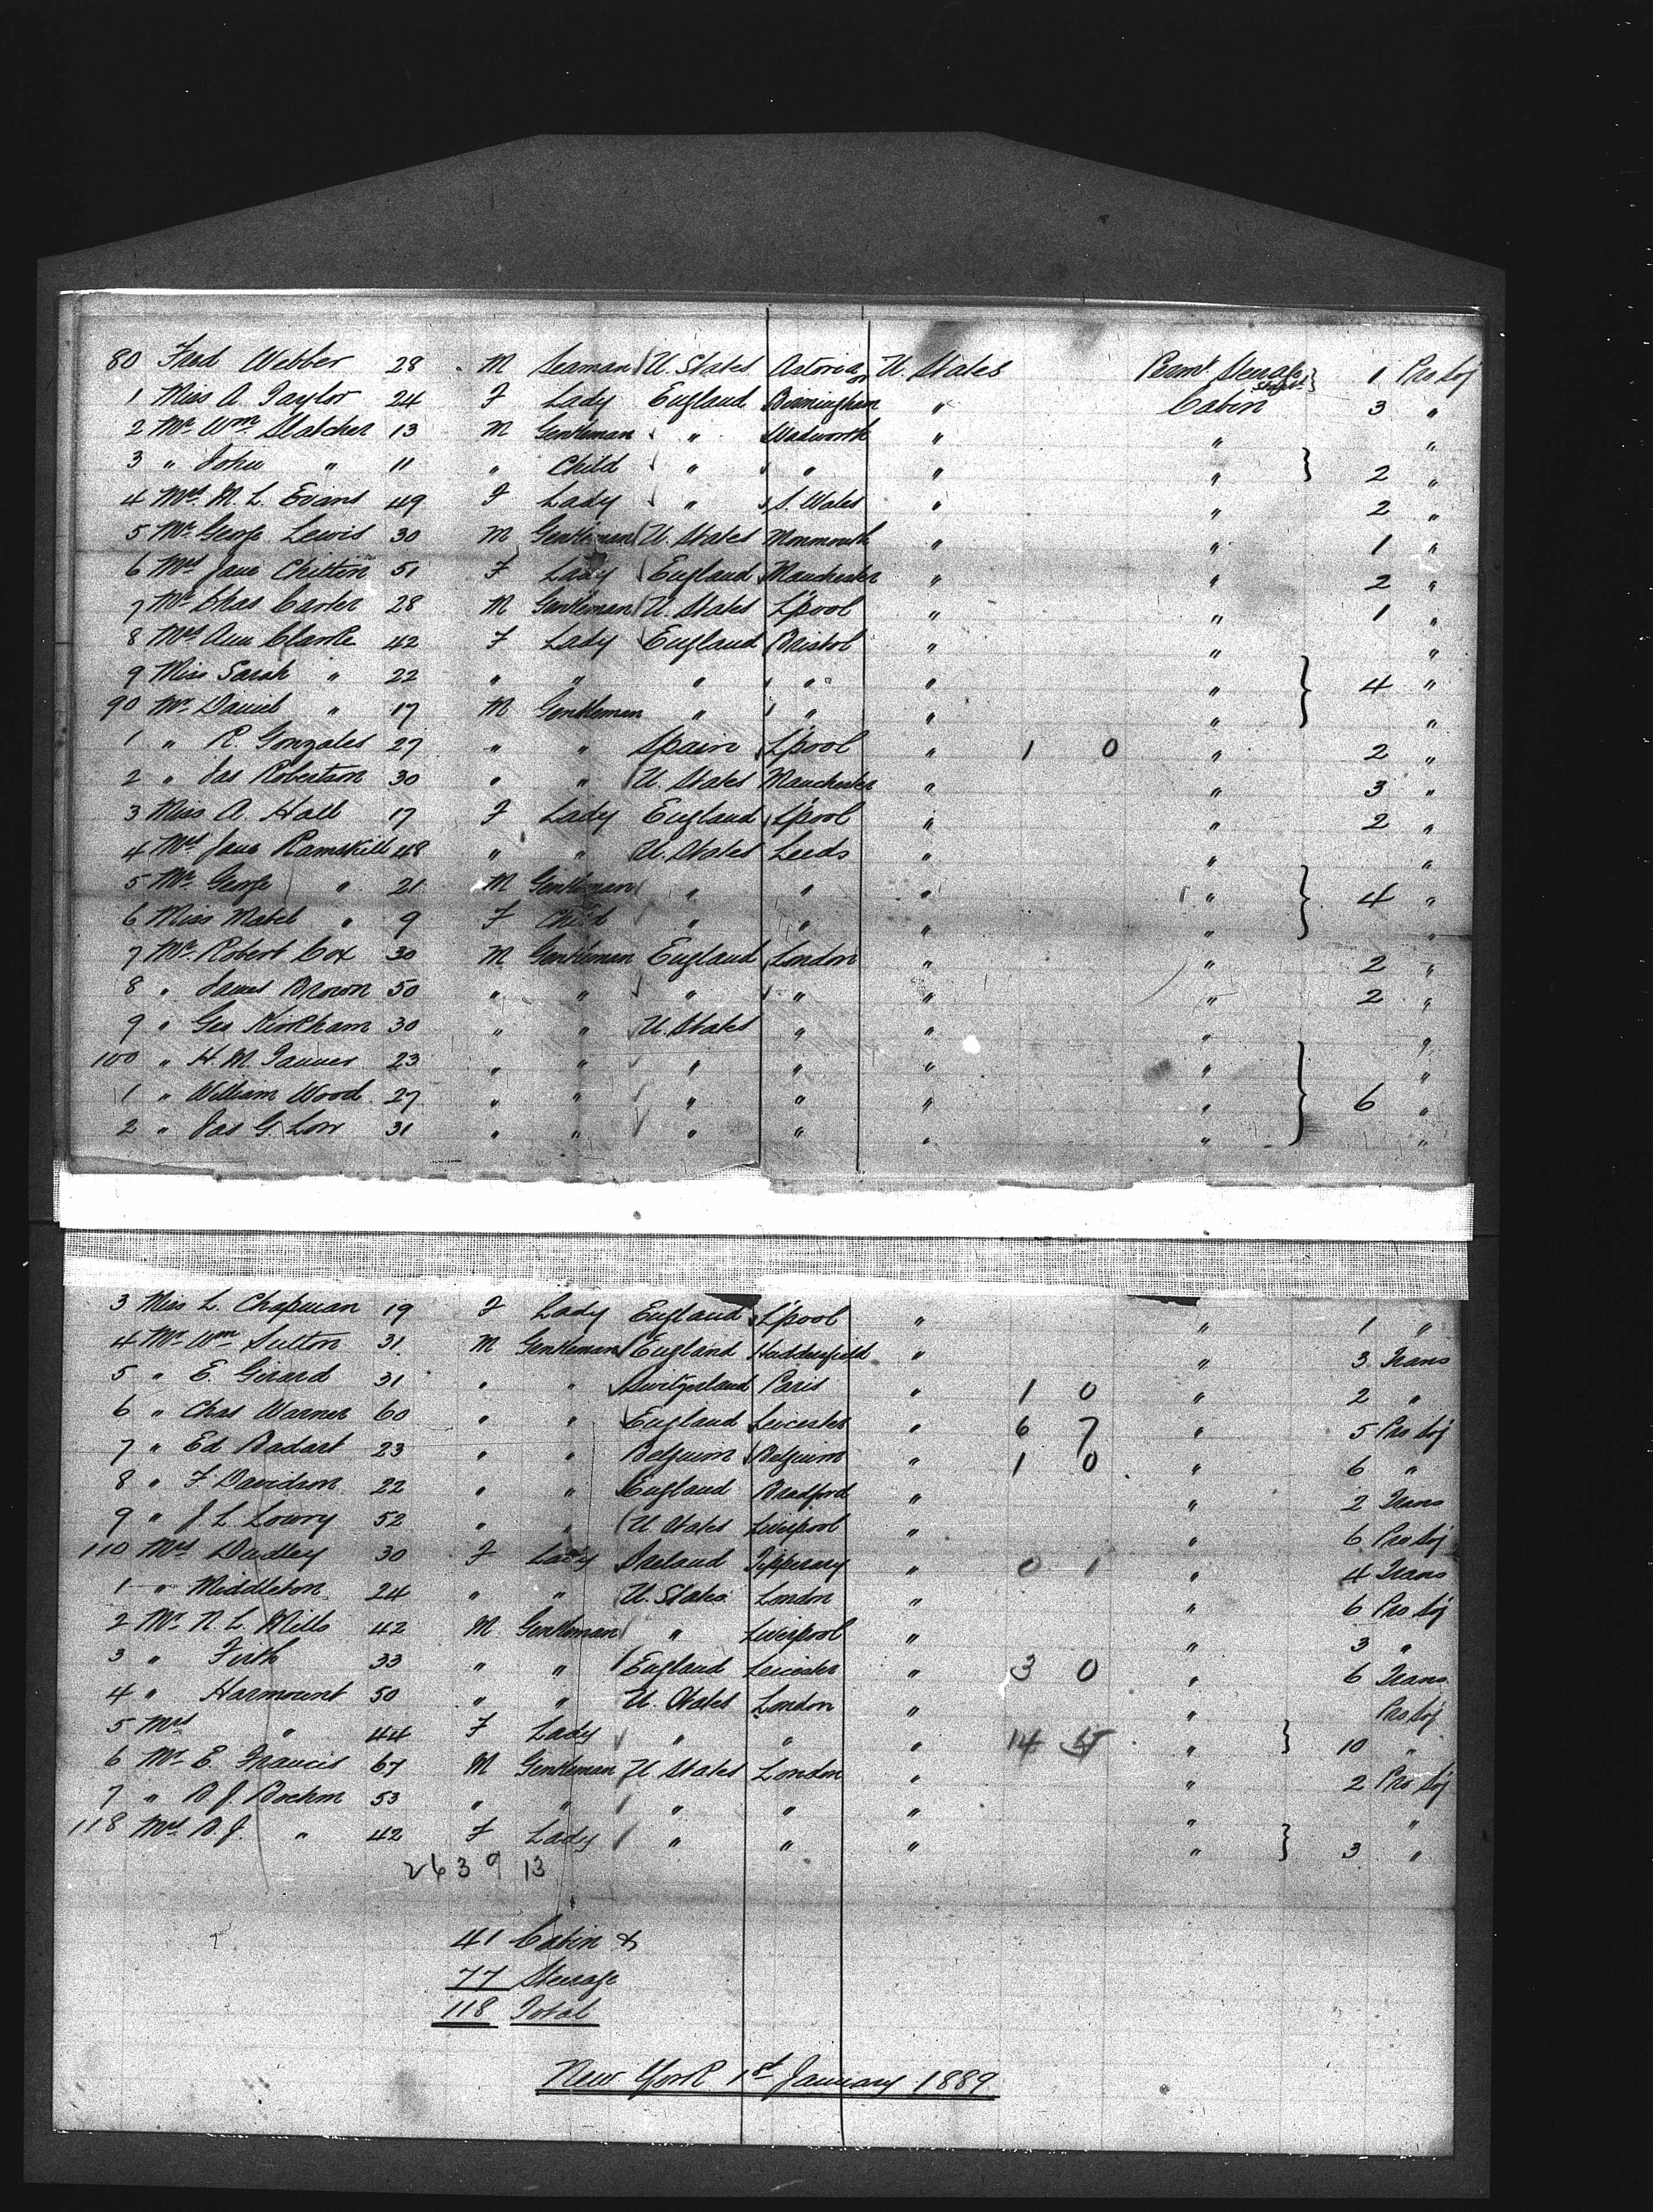 80 Fred Webber 28 M Seaman U. States Astoria U. States Steerage 1 Pro Soj
1 Miss A Taylor 24 F Lady England Birmingham " Cabin 3 "
2 Mr Wm Hatcher 13 M Gentleman " Wadworth " " "
3 " John " 11 " Child " " " " 2 "
4 Mrs M. L. Evans 49 F Lady " S. Wales " " 2 "
5 Mr George Lewis 30 M Gentleman U. States Monmouth " " 1 "
6 Mrs Jane Chitton 51 F Lady England Manchester " " 2 "
7 Mr Chas Carter 28 M Gentleman U. States L'pool " " 1 "
8 Mrs Ann Clarke 42 F Lady England Bristol " " "
9 Miss Sarah " 22 " " " " " " 4 "
90 Mr Daniel " 17 M Gentleman " " " " "
1 " R. Gonzales 27 " " Spain L'pool " 1 0 " 2 "
2 " Jas Robertson 30 " " U. States Manchester " " 3 "
3 Miss A. Hall 17 F Lady England L'pool " " 2 "
4 Mrs Jane Ramskill 48 " " U. States Leeds " " "
5 Mr George " 21 M Gentleman " " " " 4 "
6 Miss Mabel " 9 F Child " " " " "
7 Mr Robert Cox 30 M Gentleman England London " " 2 "
8 " James Brown 50 " " " " " " 2 "
9 " Geo Kirkham 30 " " U. States " " " "
100 " H. M. Tanner 23 " " " " " " "
1 " William Wood 27 " " " " " " 6 "
2 " Jas G. Low 31 " " " " " " "
3 Miss L. Chapman 19 F Lady England L'pool " " 1 "
4 Mr Wm Sutton 31 M Gentleman England Huddersfield " " 3 Trans
5 " E. Girard 31 " " Switzerland Paris " 1 0 " 2 "
6 " Chas Warner 60 " " England Leicester " 6 7 " 5 Pro Soj
7 " Ed Badart 23 " " Belguim Belguim " 1 0 " 6 "
8 " F. Davidson 22 " " England Bradford " " 2 Trans
9 " J L Lowry 52 " " U States Liverpool " " 6 Pro Soj
110 Mrs Dudley 30 F Lady Ireland Tipperary " 0 1 " 4 Trans
1 " Middleton 24 " " U. States London " " 6 Pro Soj
2 Mr N. L. Mills 42 M Gentleman " Liverpool " " 3 "
3 " Firth 33 " " England Leicester " 3 0 " 6 Trans
4 " Harmount 50 " " U. States London " " Pro Soj
5 Mrs " 44 F Lady " " " 14 " 10 "
6 Mr E. Francis 67 M Gentleman U States London " " 2 Pro Soj
7 " B J. Boehm 53 " " " " " " "
118 Mrs B. J. " 42 F Lady " " " " 3 "
26 39 13
41 Cabin &
77 Steerage
118 Total
New York 1st January 1889